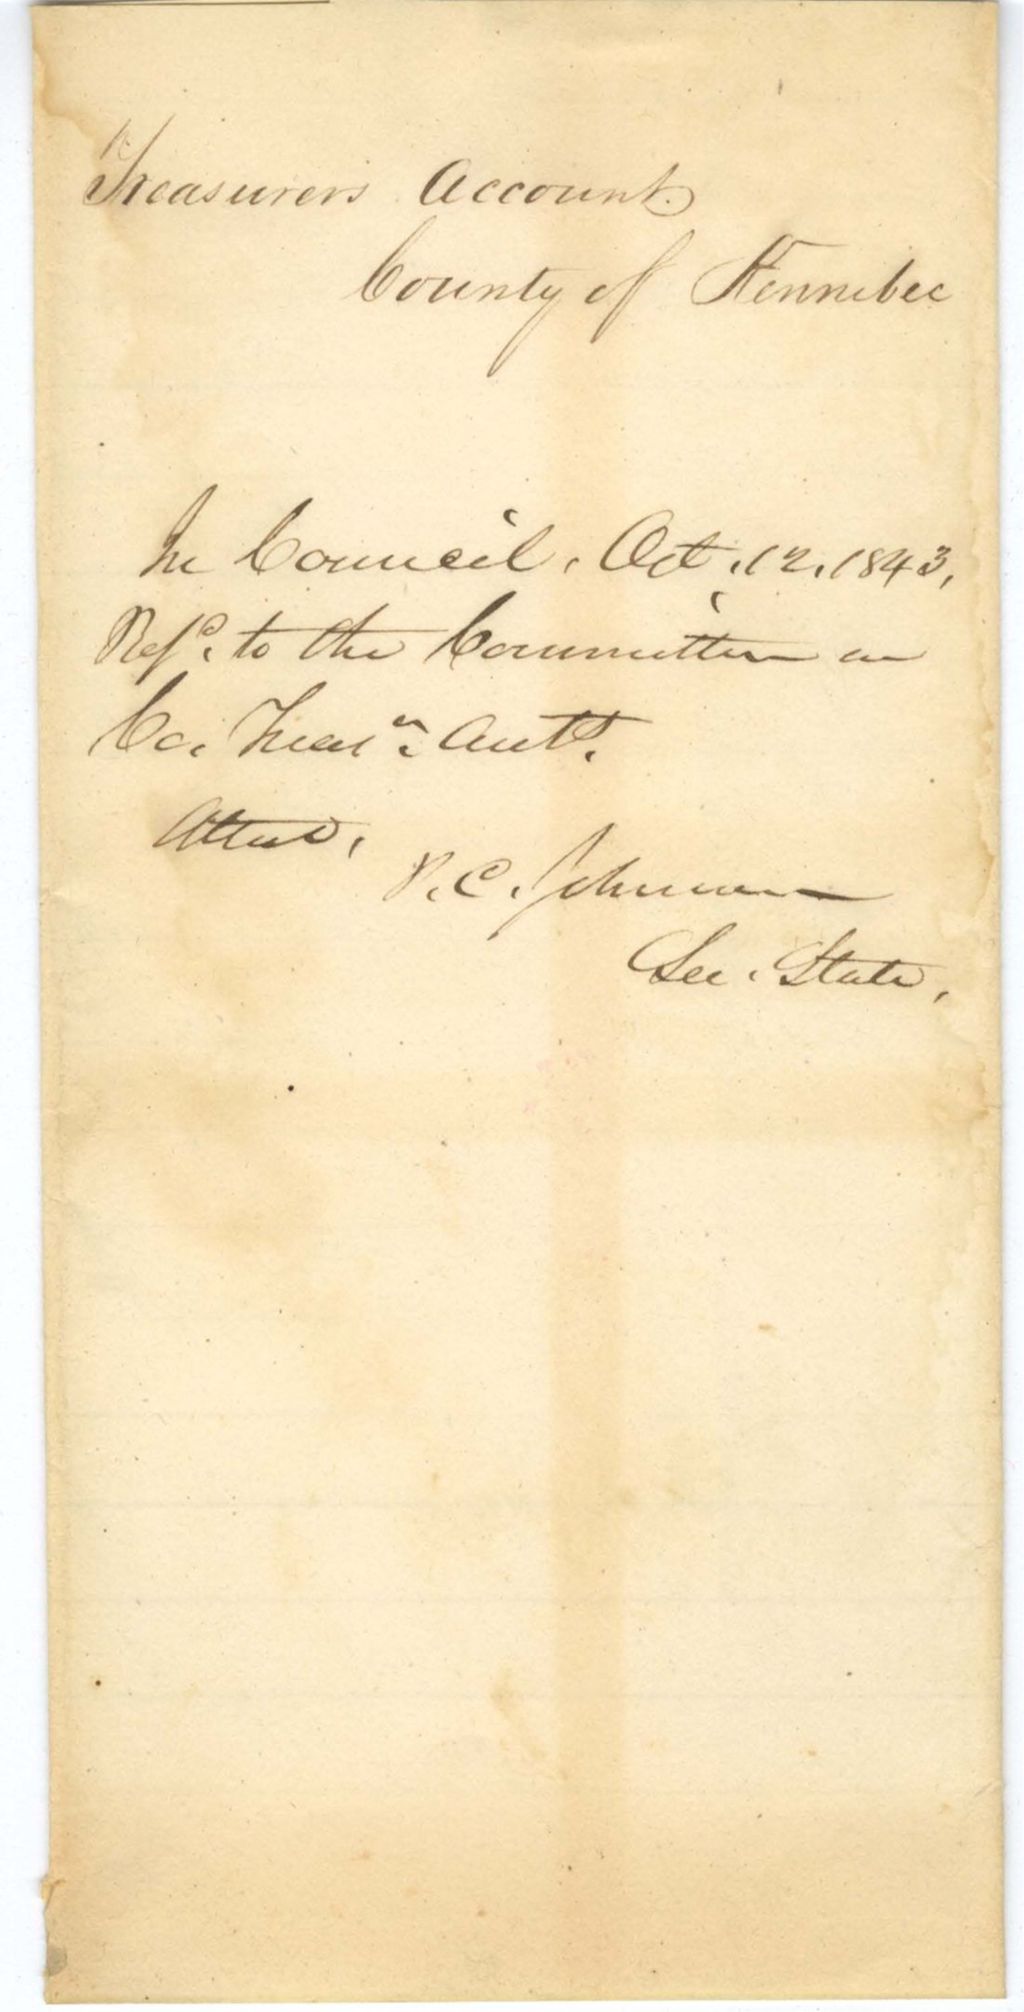 Treasurers Account.
County of Kennebec
In Council, Oct. 12, 1843,
Refd. to the Committee on
Co. Treasrs. Acts.
Attest,
P. C. Johnson
Sec. State,